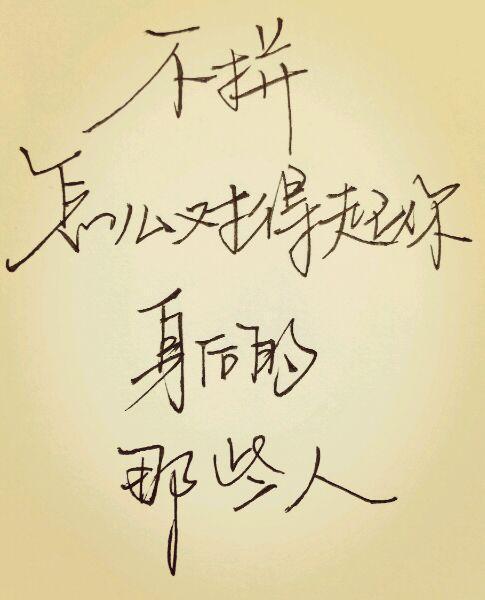 不拼
怎么对得起你
身后的
那些人